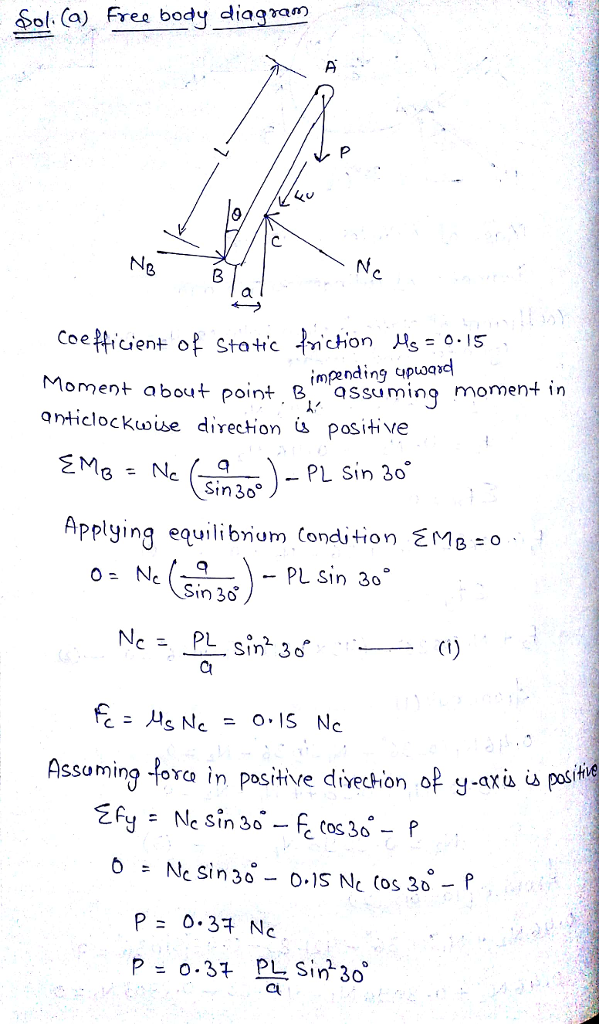 Sol. (a) Free body diagram
A
L
P
θ
C
NB
B
NC
a
Coefficient of Static friction μs = 0.15
impending upward
Moment about point B, assuming moment in
anticlockwise direction is positive
ΣMB = Nc (a/Sin30°) - PL Sin 30°
Applying equilibrium Condition ΣMB = 0
0 = Nc (a/Sin30°) - PL Sin 30°
Nc = PL/a Sin² 30° —— (1)
fc = μs Nc = 0.15 Nc
Assuming force in positive direction of y-axis is positive
Σfy = Nc Sin 30° - fc Cos 30° - P
0 = Nc Sin 30° - 0.15 Nc Cos 30° - P
P = 0.37 Nc
P = 0.37 PL/a Sin² 30°